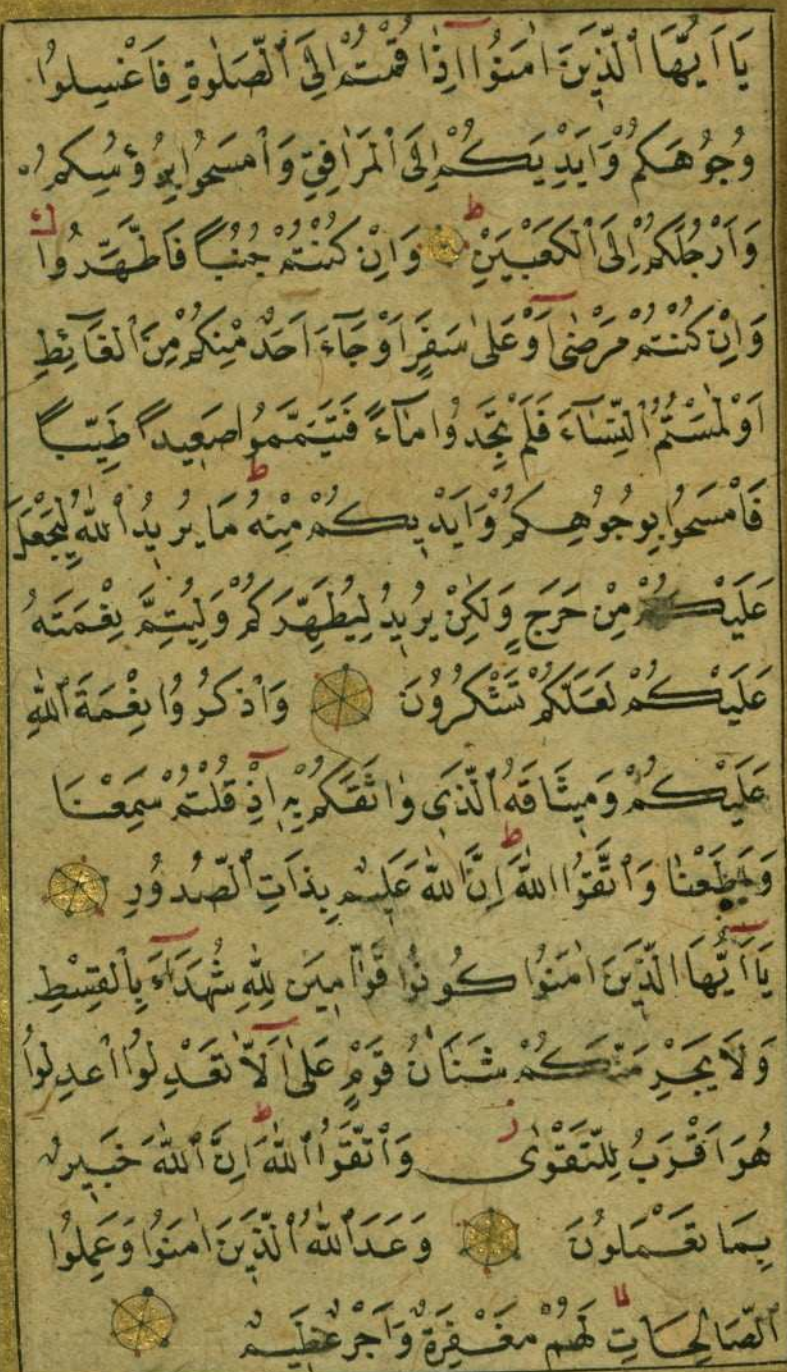 يَا اَيُّهَا الَّذِينَ اٰمَنُوا اِذَا قُمْتُمْ اِلَى الصَّلٰوةِ فَاغْسِلُوا
وُجُوهَكُمْ وَاَيْدِيَكُمْ اِلَى الْمَرَافِقِ وَامْسَحُوا بِرُؤُسِكُمْ
وَاَرْجُلَكُمْ اِلَى الْكَعْبَيْنِ ط وَاِنْ كُنْتُمْ جُنُبًا فَاطَّهَّرُوا
وَاِنْ كُنْتُمْ مَرْضٰى اَوْ عَلٰى سَفَرٍ اَوْ جَآءَ اَحَدٌ مِنْكُمْ مِنَ الْغَآئِطِ
اَوْ لٰمَسْتُمُ النِّسَآءَ فَلَمْ تَجِدُوا مَآءً فَتَيَمَّمُوا صَعِيدًا طَيِّبًا
فَامْسَحُوا بِوُجُوهِكُمْ وَاَيْدِيكُمْ مِنْهُ ط مَا يُرِيدُ اللّٰهُ لِيَجْعَلَ
عَلَيْكُمْ مِنْ حَرَجٍ وَلٰكِنْ يُرِيدُ لِيُطَهِّرَكُمْ وَلِيُتِمَّ نِعْمَتَهُ
عَلَيْكُمْ لَعَلَّكُمْ تَشْكُرُونَ وَاذْكُرُوا نِعْمَةَ اللّٰهِ
عَلَيْكُمْ وَمِيثَاقَهُ الَّذِي وَاثَقَكُمْ بِهِ اِذْ قُلْتُمْ سَمِعْنَا
وَاَطَعْنَا وَاتَّقُوا اللّٰهَ ط اِنَّ اللّٰهَ عَلِيمٌ بِذَاتِ الصُّدُورِ
يَا اَيُّهَا الَّذِينَ اٰمَنُوا كُونُوا قَوَّامِينَ لِلّٰهِ شُهَدَآءَ بِالْقِسْطِ
وَلَا يَجْرِمَنَّكُمْ شَنَاٰنُ قَوْمٍ عَلٰى اَلَّا تَعْدِلُوا اعْدِلُوا
هُوَ اَقْرَبُ لِلتَّقْوٰى ز وَاتَّقُوا اللّٰهَ ط اِنَّ اللّٰهَ خَبِيرٌ
بِمَا تَعْمَلُونَ وَعَدَ اللّٰهُ الَّذِينَ اٰمَنُوا وَعَمِلُوا
الصَّالِحَاتِ لا لَهُمْ مَغْفِرَةٌ وَاَجْرٌ عَظِيمٌ